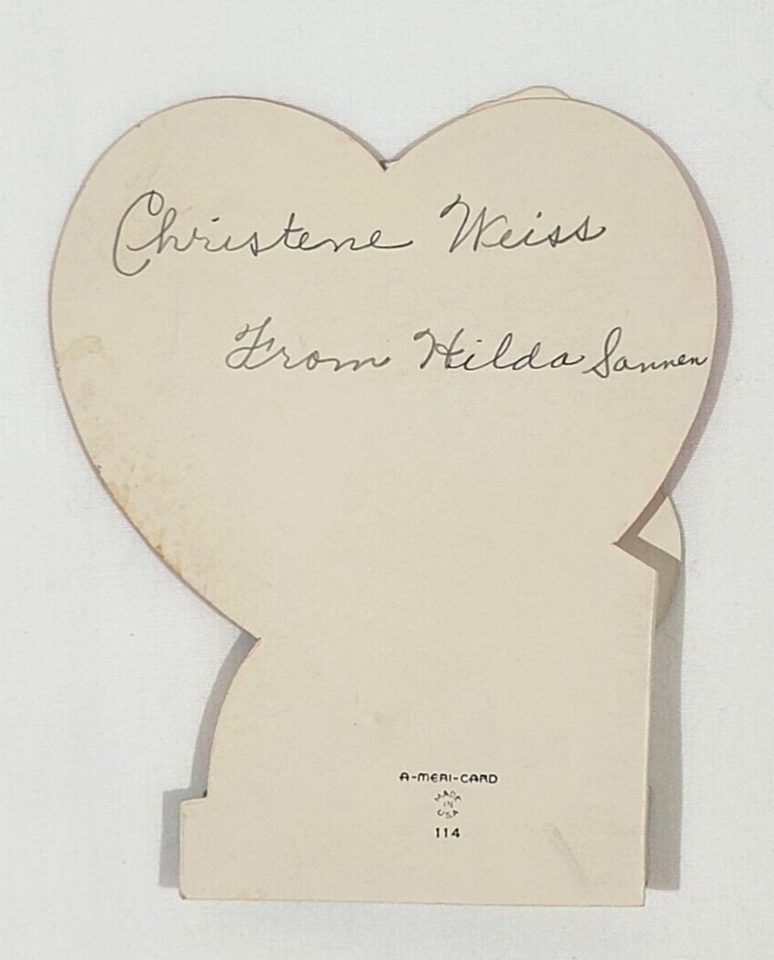 Christene Weiss
From Hilda Sannen
A-MERI-CARD
MADE
IN
USA
114